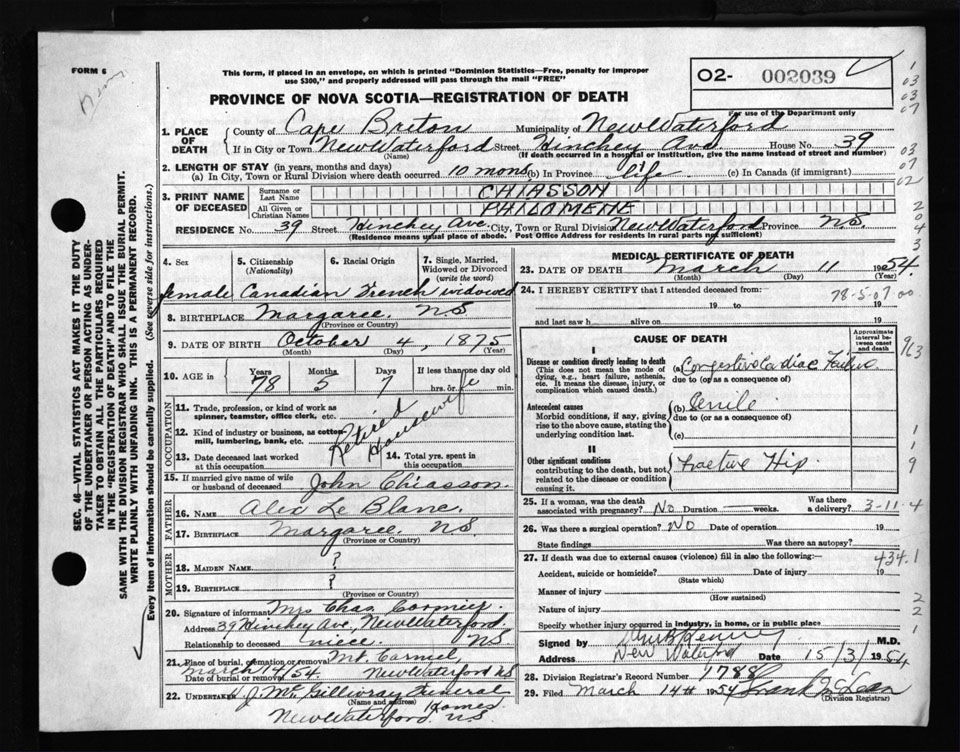 FORM 6
This form, if placed in an envelope, on which is printed "Dominion Statistics—Free, penalty for improper
use $300," and properly addressed will pass through the mail "FREE"
02- 002039
For use of the Department only
PROVINCE OF NOVA SCOTIA—REGISTRATION OF DEATH
1. PLACE OF DEATH
County of Cape Briton Municipality of New Waterford
If in City or Town New Waterford Street Hinchey Ave House No. 39
(Name) (If death occurred in a hospital or institution, give the name instead of street and number)
2. LENGTH OF STAY (in years, months and days)
(a) In City, Town or Rural Division where death occurred 10 mons (b) In Province life (c) In Canada (if immigrant)
3. PRINT NAME OF DECEASED
Surname or Last Name CHIASSON
All Given or Christian Names PHILOMENE
RESIDENCE No. 39 Street Hinchey Ave. City, Town or Rural Division New Waterford Province N.S.
(Residence means usual place of abode. Post Office Address for residents in rural parts not sufficient)
4. Sex female
5. Citizenship (Nationality) Canadian
6. Racial Origin French
7. Single, Married, Widowed or Divorced (write the word) widowed
8. BIRTHPLACE Margaree. NS
(Province or Country)
9. DATE OF BIRTH October 4, 1875
(Month) (Day) (Year)
10. AGE in Years 78 Months 5 Days 7 If less than one day old hrs. or min.
OCCUPATION
11. Trade, profession, or kind of work as spinner, teamster, office clerk, etc.
12. Kind of industry or business, as cotton-mill, lumbering, bank, etc.
Retired Housewife
13. Date deceased last worked at this occupation
14. Total yrs. spent in this occupation
15. If married give name of wife or husband of deceased John Chiasson
FATHER
16. Name Alex Le Blanc
17. Birthplace Margaree NS
(Province or Country)
MOTHER
18. Maiden Name ?
19. Birthplace ?
(Province or Country)
20. Signature of informant Mrs Chas Cormier
Address 39 Hinchey Ave, New Waterford.
Relationship to deceased niece. NS
21. Place of burial, cremation or removal Mt Carmel,
Date of burial or removal March 14/54 New Waterford NS
22. Undertaker J. Mc Gillivray Funeral Homes
(Name and address)
New Waterford NS
MEDICAL CERTIFICATE OF DEATH
23. DATE OF DEATH March 11 1954
(Month) (Day) (Year)
24. I HEREBY CERTIFY that I attended deceased from:
78-5-07 00
19 to 19
and last saw h alive on 19
CAUSE OF DEATH
Approximate interval between onset and death
I
Disease or condition directly leading to death
(This does not mean the mode of dying, e.g., heart failure, asthenia, etc. It means the disease, injury, or complication which caused death.)
(a) Congestive Cardiac Failure
due to (or as a consequence of)
Antecedent causes
Morbid conditions, if any, giving rise to the above cause, stating the underlying condition last.
(b) Senile
due to (or as a consequence of)
(c)
II
Other significant conditions
contributing to the death, but not related to the disease or condition causing it.
Fractive Hip.
25. If a woman, was the death associated with pregnancy? No Duration weeks. Was there a delivery? 3-11-4
26. Was there a surgical operation? NO Date of operation 19
State findings Was there an autopsy?
27. If death was due to external causes (violence) fill in also the following:—
434.1
Accident, suicide or homicide? Date of injury 19
(State which)
Manner of injury
(How sustained)
Nature of injury
Specify whether injury occurred in industry, in home, or in public place
Signed by M.D.
Address New Waterford Date 15/3/1954
28. Division Registrar's Record Number 1788
29. Filed March 14th 1954 Frank McLean
(Division Registrar)
SEC. 46—VITAL STATISTICS ACT MAKES IT THE DUTY
OF THE UNDERTAKER OR PERSON ACTING AS UNDER-
TAKER TO OBTAIN ALL THE PARTICULARS REQUIRED
IN THE "REGISTRATION OF DEATH" AND TO FILE THE
SAME WITH THE DIVISION REGISTRAR WHO SHALL ISSUE THE BURIAL PERMIT.
WRITE PLAINLY WITH UNFADING INK. THIS IS A PERMANENT RECORD.
Every item of information should be carefully supplied. (See reverse side for instructions.)
1
03
03
07
03
07
02
2
0
4
3
963
1
1
9
2
2
1